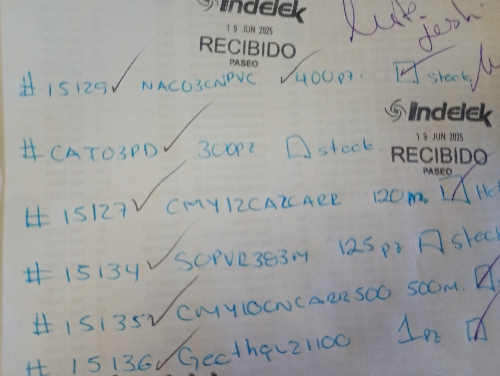 Indelek
19 JUN 2025
RECIBIDO
PASEO
# 15129 NACO3CNPVC 400pz. stock
Indelek
19 JUN 2025
RECIBIDO
PASEO
# CAT03PD 300pz stock
# 15127 CMY12CA2CARR 120m.
# 15134 SOPVR383M 125pz stock
# 15135 CMY10CNCARR500 500M.
# 15136 1pz